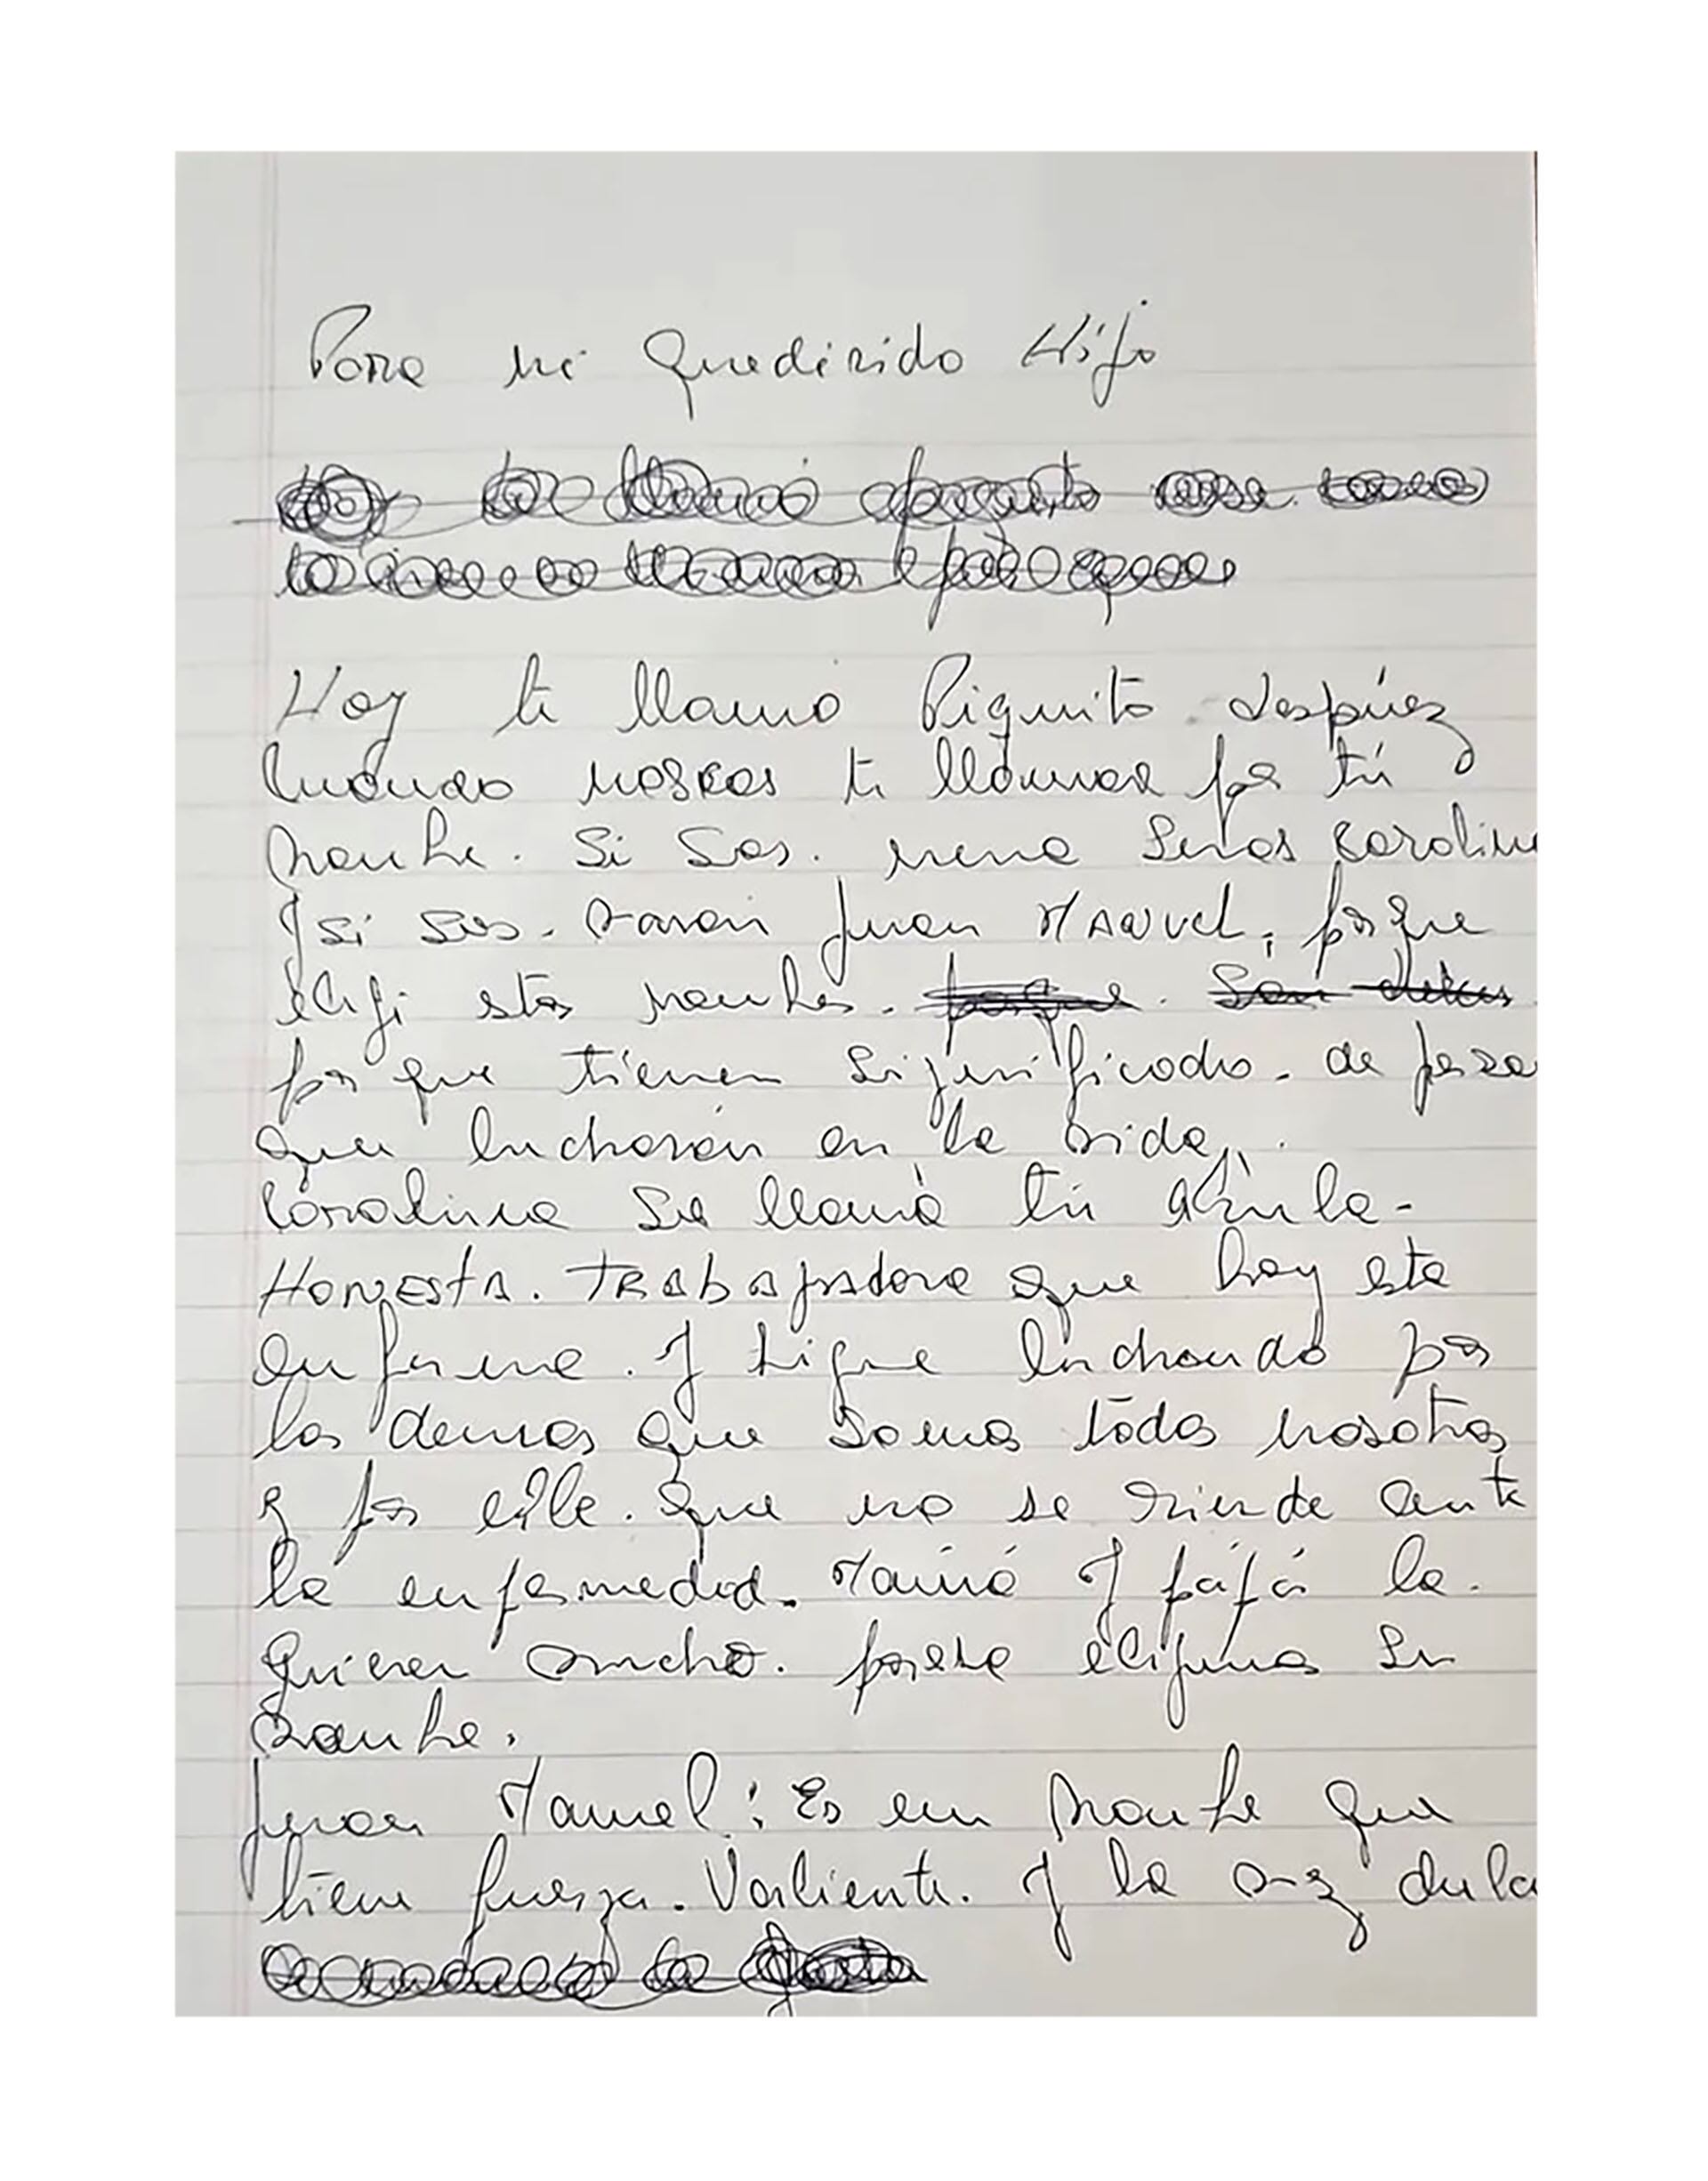 Para mi quedirido Hijo
Hoy te llamo Piquito despúez
cuando nascas te llamare por tú
nombre. Si sos. nena seras Carolin
y si sos. varon Juan MANUel, porque
elegi stos nombres.
por que tienen significodo. de perso
que lucharón en la vida,
Carolina se llama tú abuela-
HONESTA. TRAbajadora que hoy esta
enferma. y sigue luchando por
los demas que somos todos nosotros
y por ella. que no se rinde ante
la enfermedad. Mamá y pápá la.
quieren mucho. elijimos su
nombre.
Juan Manuel: Es un nombre que
tiene fuerza. Valiente. y la vez dulce